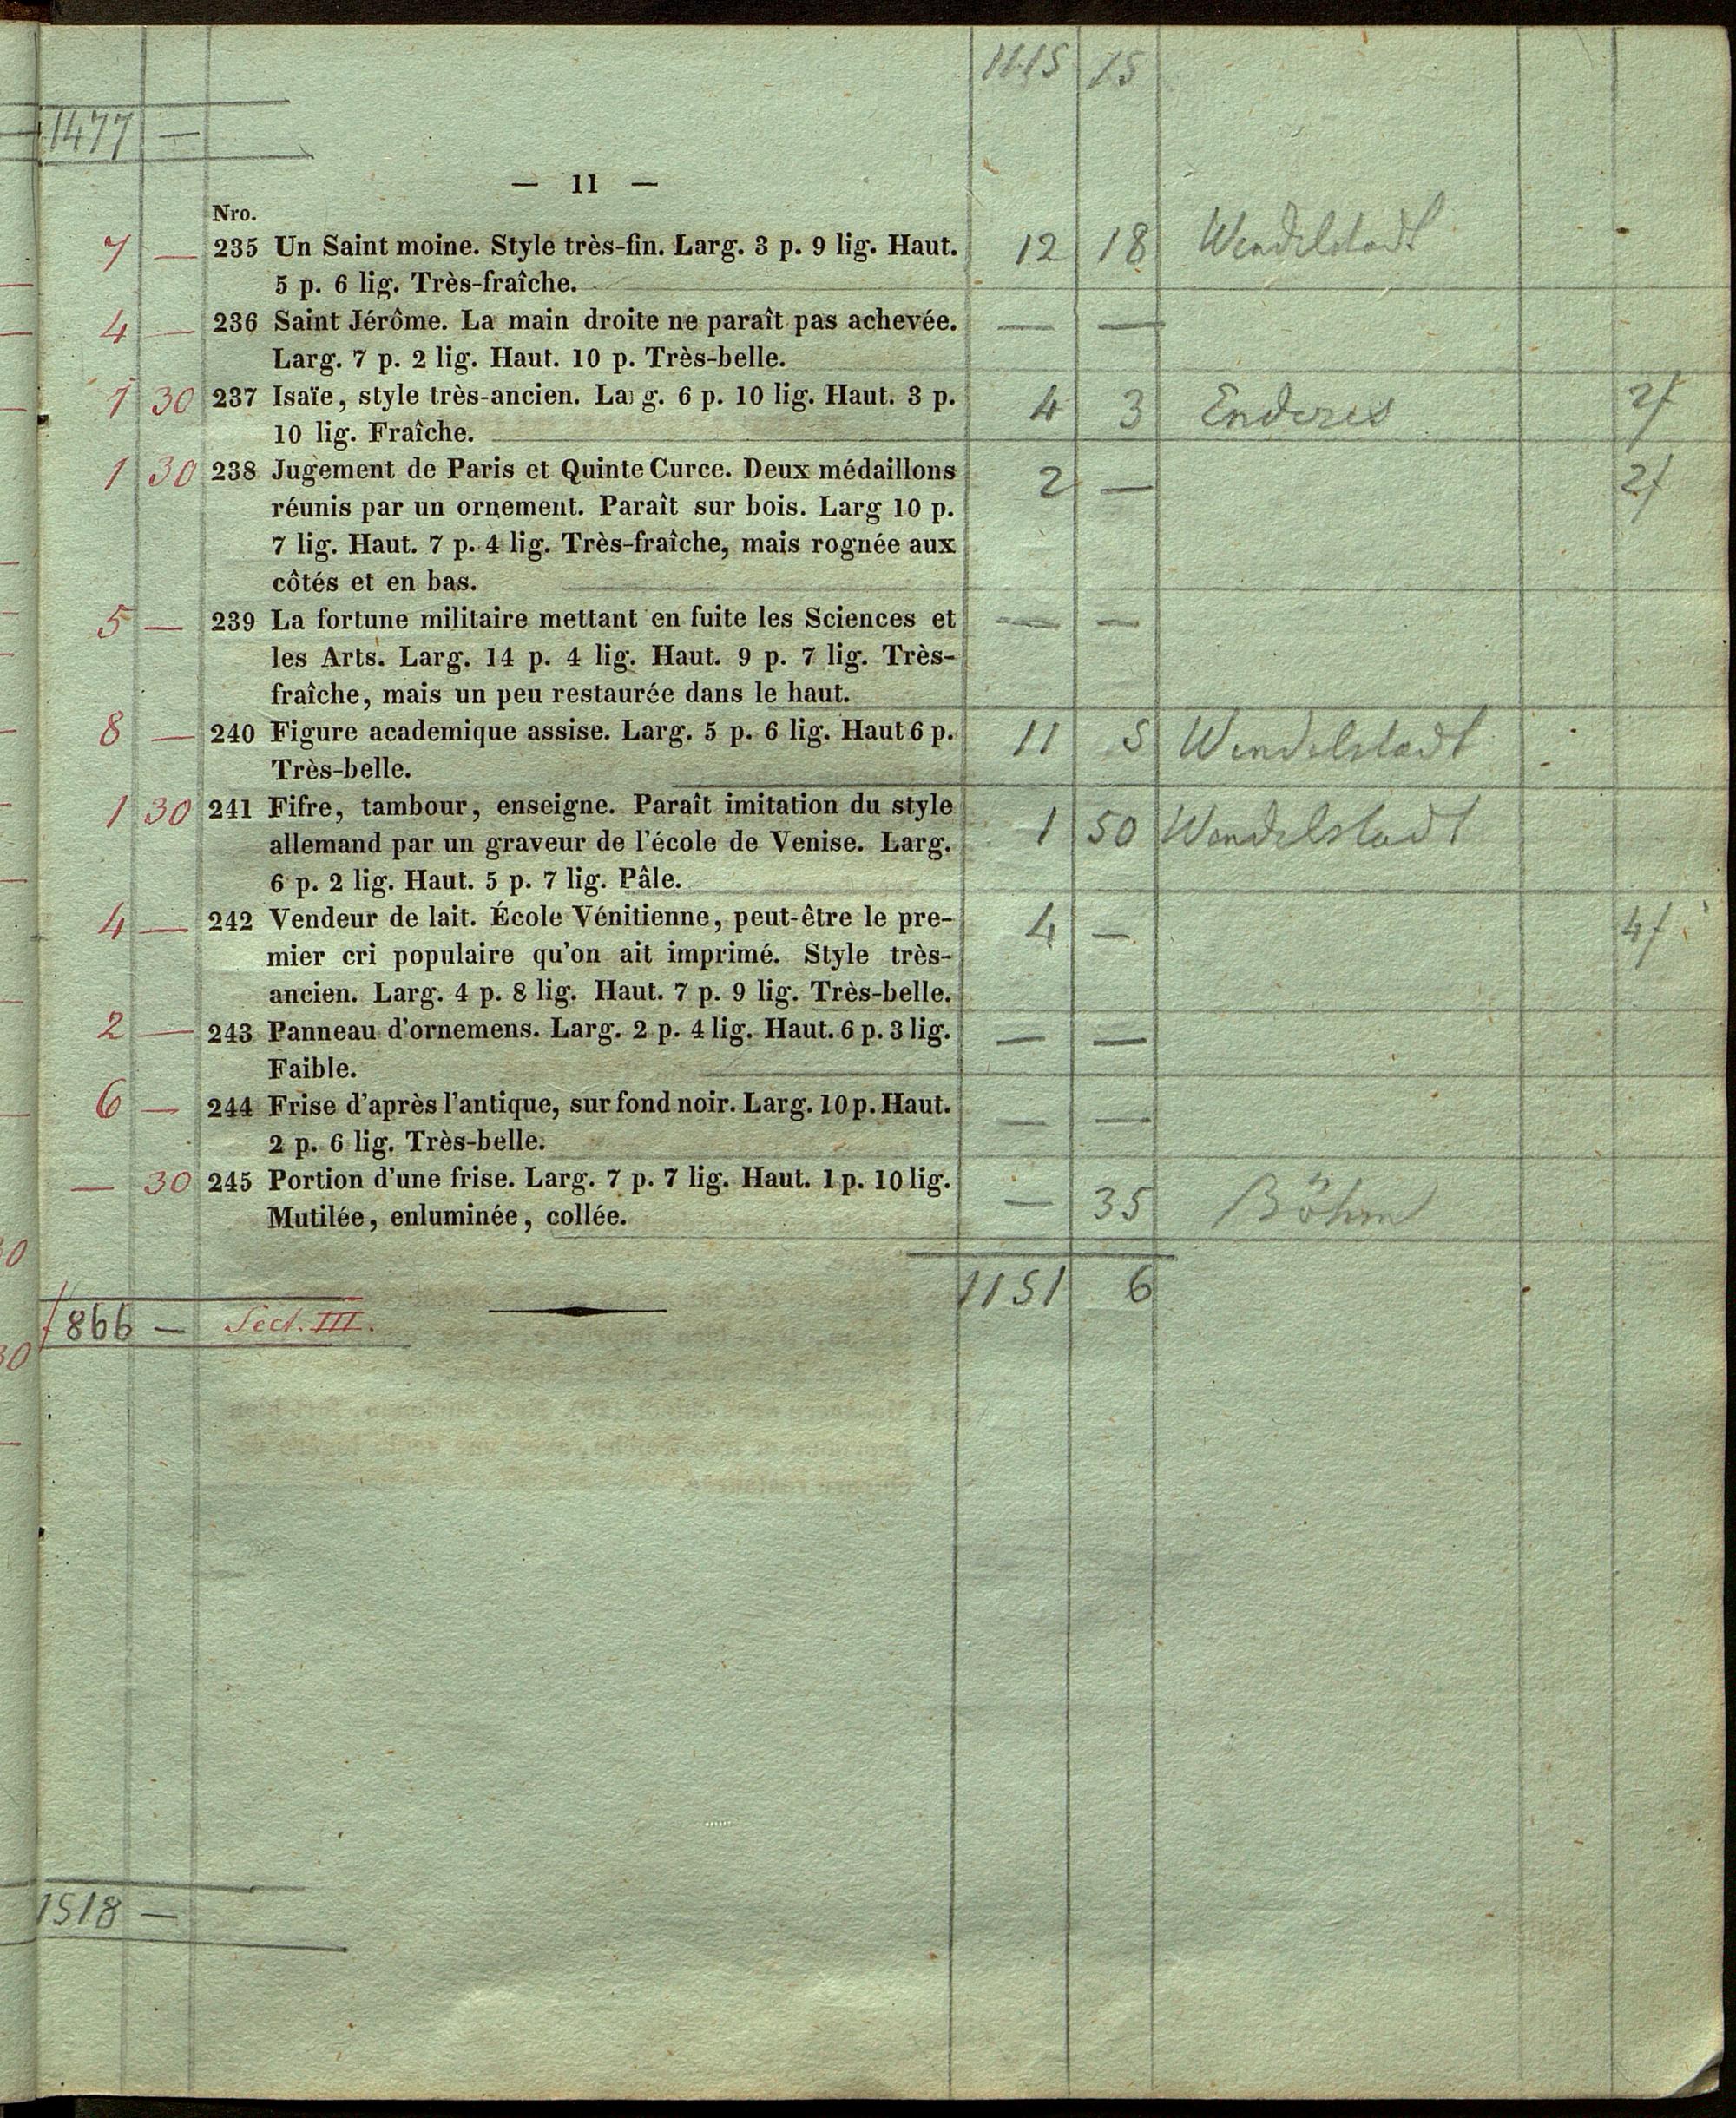 1115 15
1477 —
— 11 —
Nro.
7 — 235 Un Saint moine. Style très-fin. Larg. 3 p. 9 lig. Haut. 12 18 Wendelstadt
5 p. 6 lig. Très-fraîche.
4 — 236 Saint Jérôme. La main droite ne paraît pas achevée. — —
Larg. 7 p. 2 lig. Haut. 10 p. Très-belle.
1 30 237 Isaïe, style très-ancien. Larg. 6 p. 10 lig. Haut. 3 p. 4 3 Enderes 2f
10 lig. Fraîche.
1 30 238 Jugement de Paris et Quinte Curce. Deux médaillons 2 — 2f
réunis par un ornement. Paraît sur bois. Larg 10 p.
7 lig. Haut. 7 p. 4 lig. Très-fraîche, mais rognée aux
côtés et en bas.
5 — 239 La fortune militaire mettant en fuite les Sciences et — —
les Arts. Larg. 14 p. 4 lig. Haut. 9 p. 7 lig. Très-
fraîche, mais un peu restaurée dans le haut.
8 — 240 Figure academique assise. Larg. 5 p. 6 lig. Haut 6 p. 11 5 Wendelstadt
Très-belle.
1 30 241 Fifre, tambour, enseigne. Paraît imitation du style 1 50 Wendelstadt
allemand par un graveur de l'école de Venise. Larg.
6 p. 2 lig. Haut. 5 p. 7 lig. Pâle.
4 — 242 Vendeur de lait. École Vénitienne, peut-être le pre- 4 — 4f
mier cri populaire qu'on ait imprimé. Style très-
ancien. Larg. 4 p. 8 lig. Haut. 7 p. 9 lig. Très-belle.
2 — 243 Panneau d'ornemens. Larg. 2 p. 4 lig. Haut. 6 p. 3 lig. — —
Faible.
6 — 244 Frise d'après l'antique, sur fond noir. Larg. 10 p. Haut. — —
2 p. 6 lig. Très-belle.
— 30 245 Portion d'une frise. Larg. 7 p. 7 lig. Haut. 1 p. 10 lig. — 35 Böhm
Mutilée, enluminée, collée.
1151 6
1866 — Sect. III.
1518 —